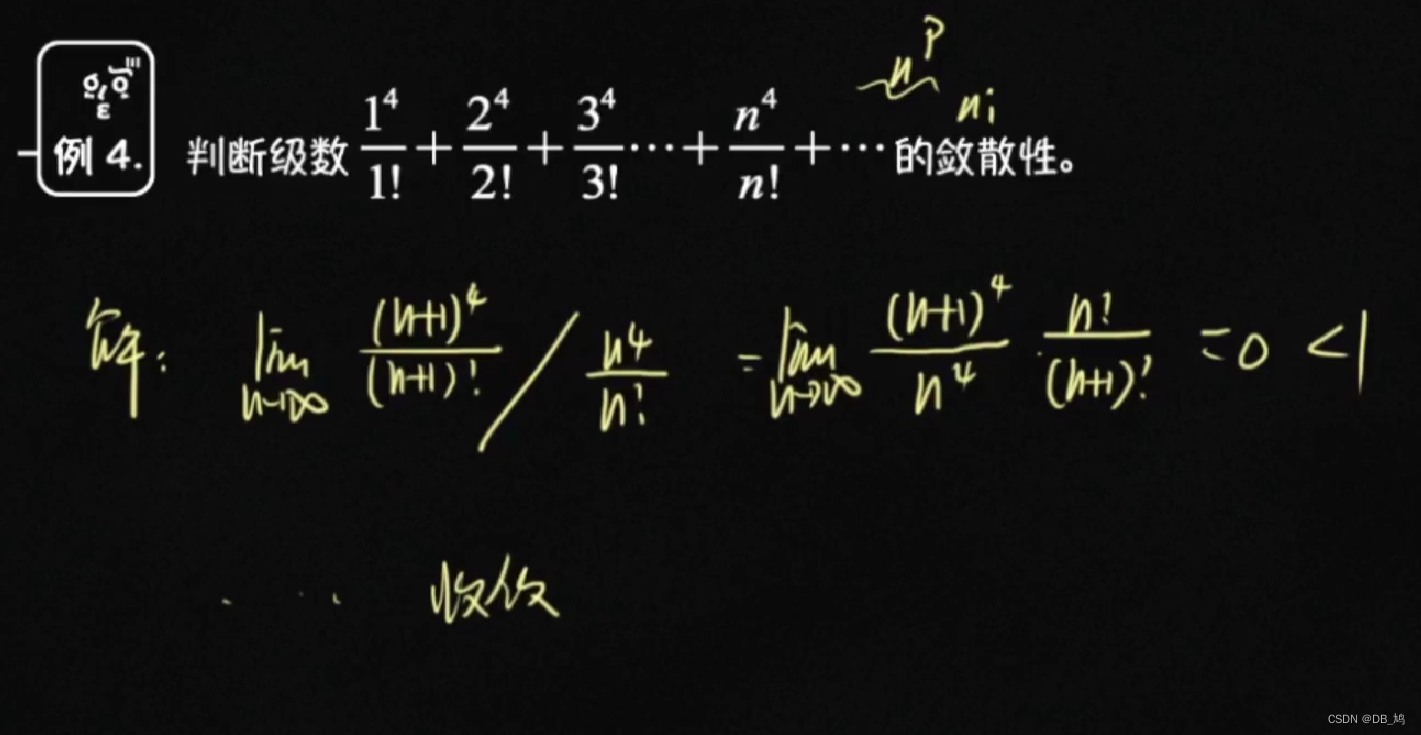 n^p
n!
例 4. 判断级数 1^4/1! + 2^4/2! + 3^4/3! ⋯ + n^4/n! + ⋯ 的敛散性。
解: lim n→∞ (n+1)^4/(n+1)! / n^4/n! = lim n→∞ (n+1)^4/n^4 · n!/(n+1)! = 0 < 1
. . . 收敛
CSDN @DB_鸠